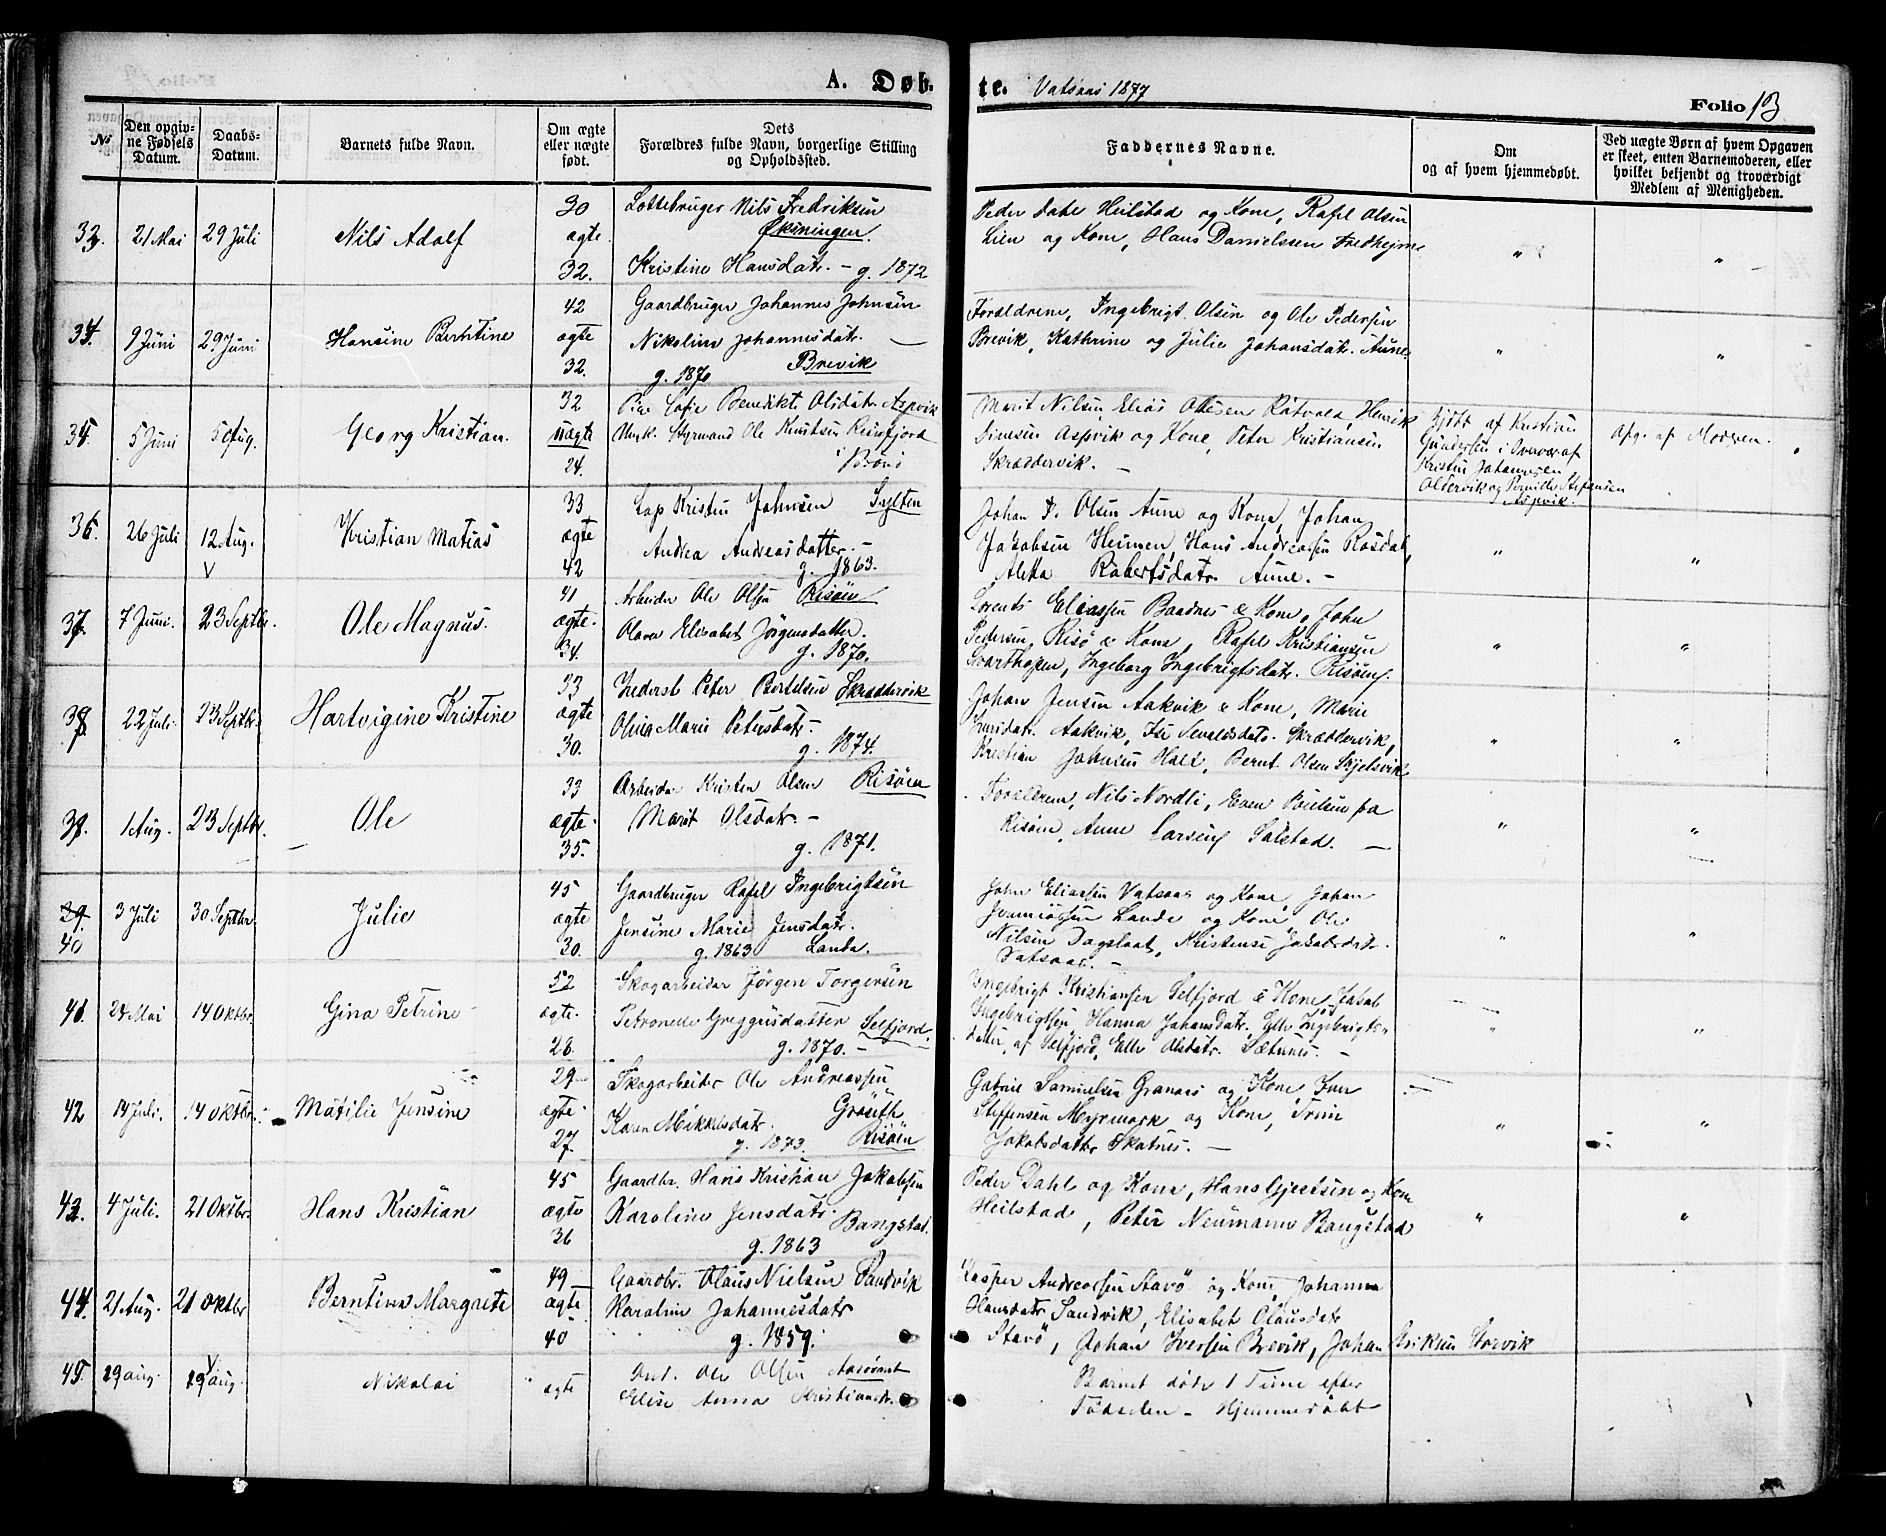 A. Døb-
te. Vatsaas 1877
Folio 13
No
Den opgiv-
ne Fødsels
Datum.
Daabs-
Datum.
Barnets fulde Navn.
Om ægte
eller uægte
født.
Dets
Forældres fulde Navn, borgerlige Stilling
og Opholdssted.
Faddernes Navne.
Om
og af hvem hjemmedøbt.
Ved uægte Børn af hvem Opgaven
er skeet, enten Barnemoderen, eller
hvilket bekjendt og troværdigt
Medlem af Menigheden.
33. 21 Mai 29 Juli Nils Adolf
30
ægte.
32.
Nils Fredriksen
Kristine Hansdatr. - g. 1872
Peder Dahl Heilstad og Kone, Rafel Olsen
Lien og Kone, Hans Danielssen Fredhejm
34. 9 Juni 29 Juni Hansine Berntine
42
ægte
32.
Gaardbruger Johannes Johnsen
Nikoline Johannesdatr.
g. 1870 Brevik
Forældrene, Ingebrigt Olsen og Ole Pedersen
Brevik, Kathrine og Julie Johansdatr. Aune.
35. 5 Juni 5 Aug. Georg Kristian.
32
uægte
24.
Pige Sofie Benedikte Olsdatr. Aspvik
Ungk. Styrmand Ole Knutsen
i
Marit Nilsen, Elias Olsen Rotvold, Henrik
Simesen Aspvik og Kone, Peter Kristiansen
Skræddervik. -
Hjdøbt af Kristian
Gundersen i Overvær af
Kristen Johannesen
Oldervik og Stefansen
Aspvik.
Opg. af Moderen.
36. 26 Juli 12 Aug. Kristian Matias
33
ægte
42
Kristen Johnsen Sylten
Andrea Andreasdatter. -
g. 1863.
Johan P. Olsen Aune og Kone, Johan
Jakobsen Heimen, Hans Andreassen Rosdal,
Robertsdatr. Aune. -
37. 7 Juni. 23 Septbr. Ole Magnus.
41
ægte.
34.
Arbeider Ole Olsen Risøen
Olava Elisabet Jørgensdatter.
g. 1870.
Lorents Eliassen Baadnes & Kone, John
Pedersen, Risø & Kone, Rafel Kristiansen
Svarthopen, Ingeborg Ingebrigtsdatr. Risøen
38. 22 Juli. 23 Septbr. Hartvigine Kristine
33
ægte
30.
Inderst Peter Bertelsen Skræddervik
Olina Marie Petersdatr. -
g. 1874.
Johan Jensen Aakvik & Kone, Marie
Aakvik, Sevaldsdatr. Skræddervik,
Kristian Johnsen Hals, Bernt Olsen Skjelsvik
39. 1 Aug. 23 Septbr. Ole
33
ægte.
35.
Arbeider Kristen Olsen Risøen
Marit Olsdatr. -
g. 1871.
Forældrene, Nils Nordli, Even Paulsen paa
Risøen, Anne Larsen Salstad. -
39.
40
3 Juli 30 Septbr. Julie
45
ægte
30.
Gaardbruger Rafel Ingebrigtsen
Jensine Marie Jensdatr.
g. 1863 Landa.
John Eliassen Vatsaas og Kone, Johan
Lande og Kone, Ole
Nilsen Dagslaat, Kristense Jakobsdatr.
Vatsaas. -
41. 24 Mai 14 Oktbr. Gina Petrine
52
ægte.
28.
Skogarbeider Jørgen Torgersen
Petronelle Greggusdatter Selfjord.
g. 1870. -
Ingebrigt Kristiansen Selfjord & Kone, Jakob
Ingebrigtsen, Hanna Johansdatr. Elle Ingebrigts-
datter, af Selfjord, Elle Olsdatr. Sæternes. -
42 14 Juli. 14 Oktbr. Matilie Jensine
29
ægte.
27.
Skogarbeider Ole Andreassen
Karen Mikkelsdatr.
g. 1873. Risøen
Gabriel Samuelsen Granaas og Kone, Iver
Steffensen Myrmark og Kone, Trine
Jakobsdatter Skatnes. -
43. 4 Juli. 21 Oktbr. Hans Kristian
45
ægte
36
Gaardbr. Hans Kristian Jakobsen
Karoline Jensdatr. Bangstad.
g. 1863
Peder Dahl og Kone, Hans Gjertsen og Kone
Heilstad, Peter Neumann Bangstad
44. 21 Aug. 21 Oktbr Berntine Margrete
49
ægte
40
Gaardbr. Olaus Nielsen Sandvik
Karoline Johannesdatr
g. 1859.
Kasper Andreassen Stavø og Kone, Johanna
Hansdatr. Sandvik, Elisabet Olausdatr
Stavø, Johan Iversen Brevik, Johan Eriksen Storvik
45. 29 aug. 29 aug. Nikolai
ægte
Ole Olsen
Elise Anna Kristiansdr.
Barnet døde 1 Time efter
Fødselen - Hjemmedøbt